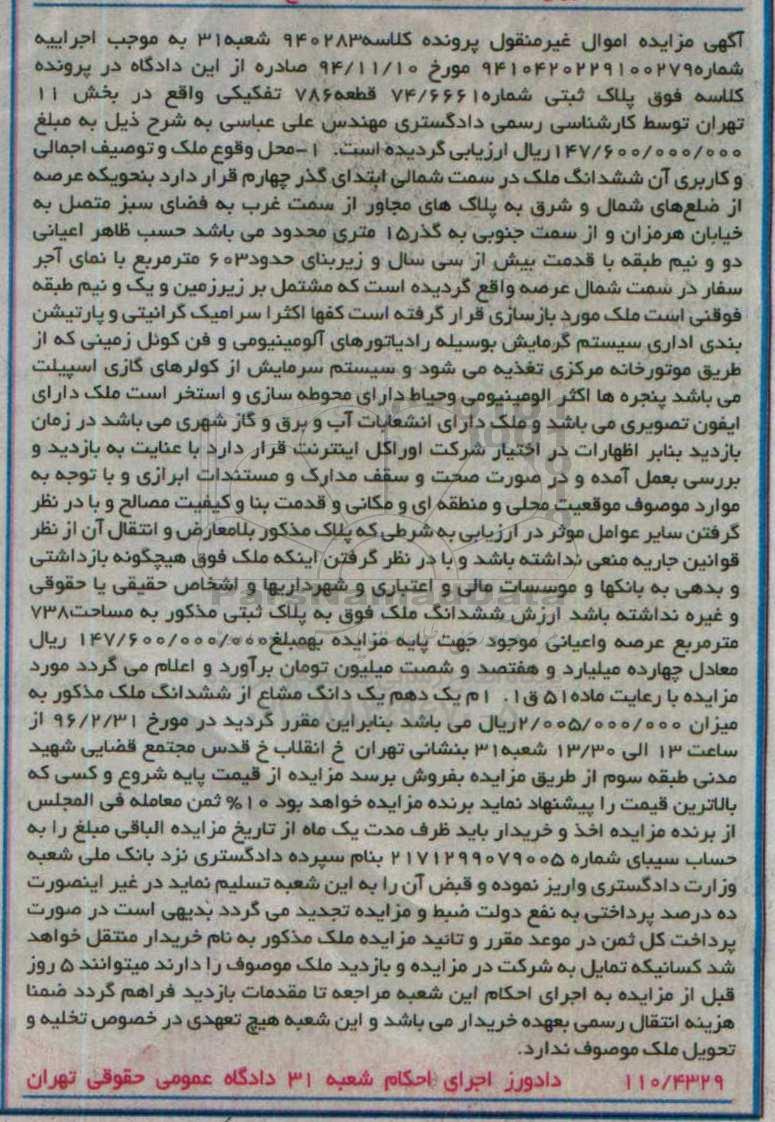 آگهی مزایده اموال غیرمنقول پرونده کلاسه۹۴۰۲۸۳ شعبه۳۱ به موجب اجراییه
شماره۹۴۱۰۴۲۰۲۲۹۱۰۰۲۷۹ مورخ ۹۴/۱۱/۱۰ صادره از این دادگاه در پرونده
کلاسه فوق پلاک ثبتی شماره۷۴/۶۶۶۱ قطعه۷۸۶ تفکیکی واقع در بخش ۱۱
تهران توسط کارشناسی رسمی دادگستری مهندس علی عباسی به شرح ذیل به مبلغ
۱۴۷/۶۰۰/۰۰۰/۰۰۰ریال ارزیابی گردیده است. ۱-محل وقوع ملک و توصیف اجمالی
و کاربری آن ششدانگ ملک در سمت شمالی ابتدای گذر چهارم قرار دارد بنحویکه عرصه
از ضلع‌های شمال و شرق به پلاک های مجاور از سمت غرب به فضای سبز متصل به
خیابان هرمزان و از سمت جنوبی به گذر۱۵ متری محدود می باشد حسب ظاهر اعیانی
دو و نیم طبقه با قدمت بیش از سی سال و زیربنای حدود۶۰۳ مترمربع با نمای آجر
سفار در سمت شمال عرصه واقع گردیده است که مشتمل بر زیرزمین و یک و نیم طبقه
فوقنی است ملک مورد بازسازی قرار گرفته است کفها اکثرا سرامیک گرانیتی و پارتیشن
بندی اداری سیستم گرمایش بوسیله رادیاتورهای آلومینیومی و فن کوئل زمینی که از
طریق موتورخانه مرکزی تغذیه می شود و سیستم سرمایش از کولرهای گازی اسپیلت
می باشد پنجره ها اکثر الومینیومی وحیاط دارای محوطه سازی و استخر است ملک دارای
ایفون تصویری می باشد و ملک دارای انشعابات آب و برق و گاز شهری می باشد در زمان
بازدید بنابر اظهارات در اختیار شرکت اوراکل اینترنت قرار دارد با عنایت به بازدید و
بررسی بعمل آمده و در صورت صحت و سقف مدارک و مستندات ابرازی و با توجه به
موارد موصوف موقعیت محلی و منطقه ای و مکانی و قدمت بنا و کیفیت مصالح و با در نظر
گرفتن سایر عوامل موثر در ارزیابی به شرطی که پلاک مذکور بلامعارض و انتقال آن از نظر
قوانین جاریه منعی نداشته باشد و با در نظر گرفتن اینکه ملک فوق هیچگونه بازداشتی
و بدهی به بانکها و موسسات مالی و اعتباری و شهرداریها و اشخاص حقیقی یا حقوقی
و غیره نداشته باشد ارزش ششدانگ ملک فوق به پلاک ثبتی مذکور به مساحت۷۳۸
مترمربع عرصه واعیانی موجود جهت پایه مزایده بهمبلغ۱۴۷/۶۰۰/۰۰۰/۰۰۰ ریال
معادل چهارده میلیارد و هفتصد و شصت میلیون تومان برآورد و اعلام می گردد مورد
مزایده با رعایت ماده۵۱ ق۱. ۱م یک دهم یک دانگ مشاع از ششدانگ ملک مذکور به
میزان ۲/۰۰۵/۰۰۰/۰۰۰ریال می باشد بنابراین مقرر گردید در مورخ ۹۶/۲/۳۱ از
ساعت ۱۳ الی ۱۳/۳۰ شعبه۳۱ بنشانی تهران خ انقلاب خ قدس مجتمع قضایی شهید
مدنی طبقه سوم از طریق مزایده بفروش برسد مزایده از قیمت پایه شروع و کسی که
بالاترین قیمت را پیشنهاد نماید برنده مزایده خواهد بود ۱۰% ثمن معامله فی المجلس
از برنده مزایده اخذ و خریدار باید ظرف مدت یک ماه از تاریخ مزایده الباقی مبلغ را به
حساب سیبای شماره ۲۱۷۱۲۹۹۰۷۹۰۰۵ بنام سپرده دادگستری نزد بانک ملی شعبه
وزارت دادگستری واریز نموده و قبض آن را به این شعبه تسلیم نماید در غیر اینصورت
ده درصد پرداختی به نفع دولت ضبط و مزایده تجدید می گردد بدیهی است در صورت
پرداخت کل ثمن در موعد مقرر و تائید مزایده ملک مذکور به نام خریدار منتقل خواهد
شد کسانیکه تمایل به شرکت در مزایده و بازدید ملک موصوف را دارند میتوانند ۵ روز
قبل از مزایده به اجرای احکام این شعبه مراجعه تا مقدمات بازدید فراهم گردد ضمنا
هزینه انتقال رسمی بعهده خریدار می باشد و این شعبه هیچ تعهدی در خصوص تخلیه و
تحویل ملک موصوف ندارد.
۱۱۰/۴۳۲۹ دادورز اجرای احکام شعبه ۳۱ دادگاه عمومی حقوقی تهران